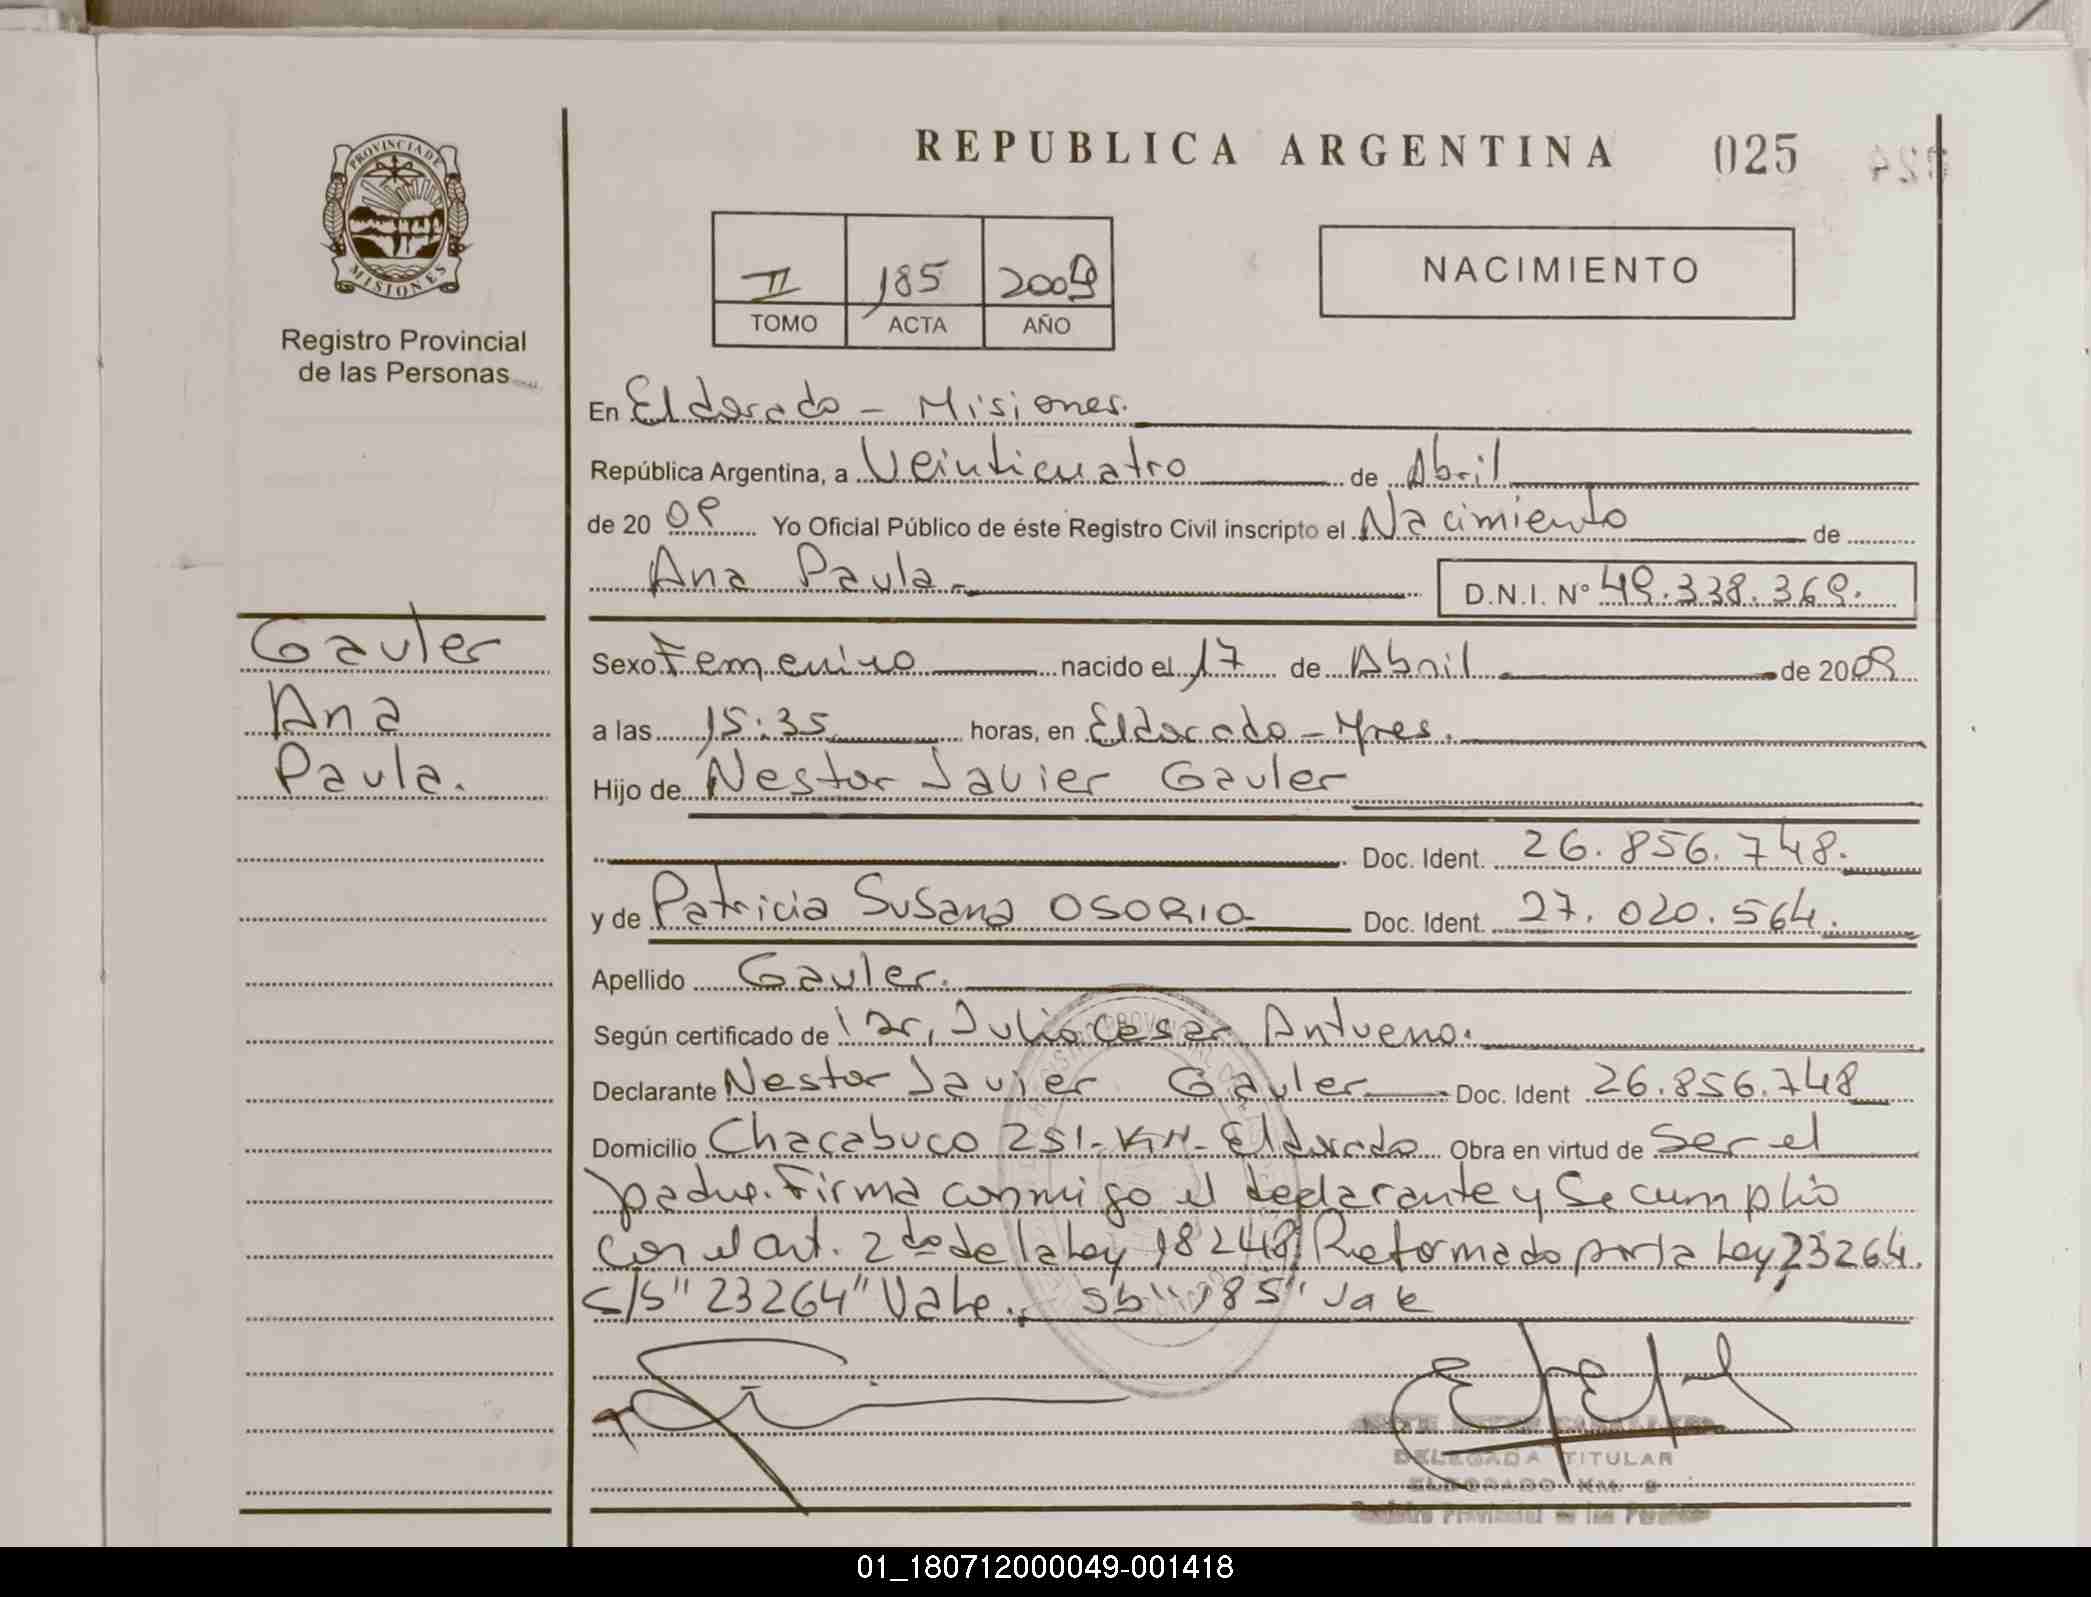 REPUBLICA ARGENTINA 025
PROVINCIA DE
MISIONES
Registro Provincial
de las Personas
II 185 2009
TOMO ACTA AÑO
NACIMIENTO
En Eldorado - Misiones.
República Argentina, a Veinticuatro de Abril
de 20 09 Yo Oficial Público de éste Registro Civil inscripto el Nacimiento de
Ana Paula - D.N.I. Nº 49.338.369.
Gauler
Ana
Paula.
Sexo Femenino nacido el 17 de Abril de 2009
a las 15:35 horas, en Eldorado - Mnes.
Hijo de Nestor Javier Gauler
Doc. Ident. 26.856.748.
y de Patricia Susana OSORIO Doc. Ident. 27.020.564.
Apellido Gauler.
Según certificado de Julio Cesar Antueno.
Declarante Nestor Javier Gauler Doc. Ident 26.856.748
Domicilio Chacabuco 251 - Eldorado Obra en virtud de Ser el
padre. Firma conmigo el declarante y Se cumplio
con el art. 2do de la Ley 18248 Reformado por la Ley 23264.
s/s "23264" Vale. sb "185" Vale
DELEGADA TITULAR
ELDORADO KM. 9
Registro Provincial de las Personas
01_180712000049-001418